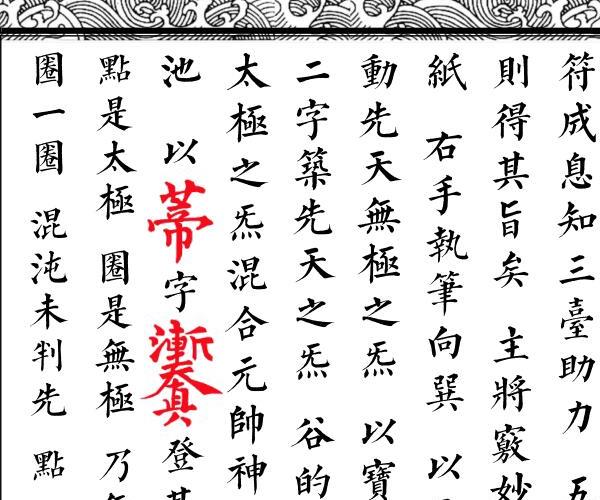 符成息知 三臺助力 五
則得其旨矣 主將竅妙
紙 右手執筆向巽 以
動先天無極之炁 以寶
二字築先天之炁 谷的
太極之炁混合元帥神
池 以 字 登
點是太極 圈是無極 乃
圈一圈 混沌未判先 點